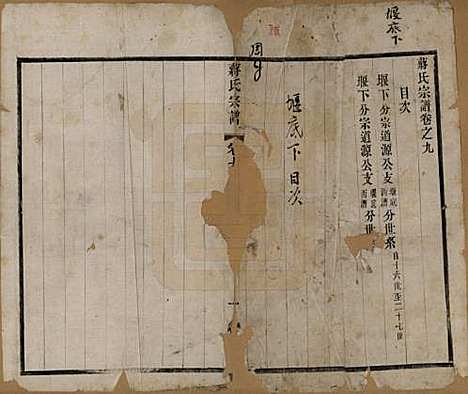 堰底下
蔣氏宗譜卷之九
目次
堰下分宗道源公支堰底西濟分世系自十六世至二十七世
堰下分宗道源公支堰底西濟分世
堰底下目次
蔣氏宗譜
卷九
一